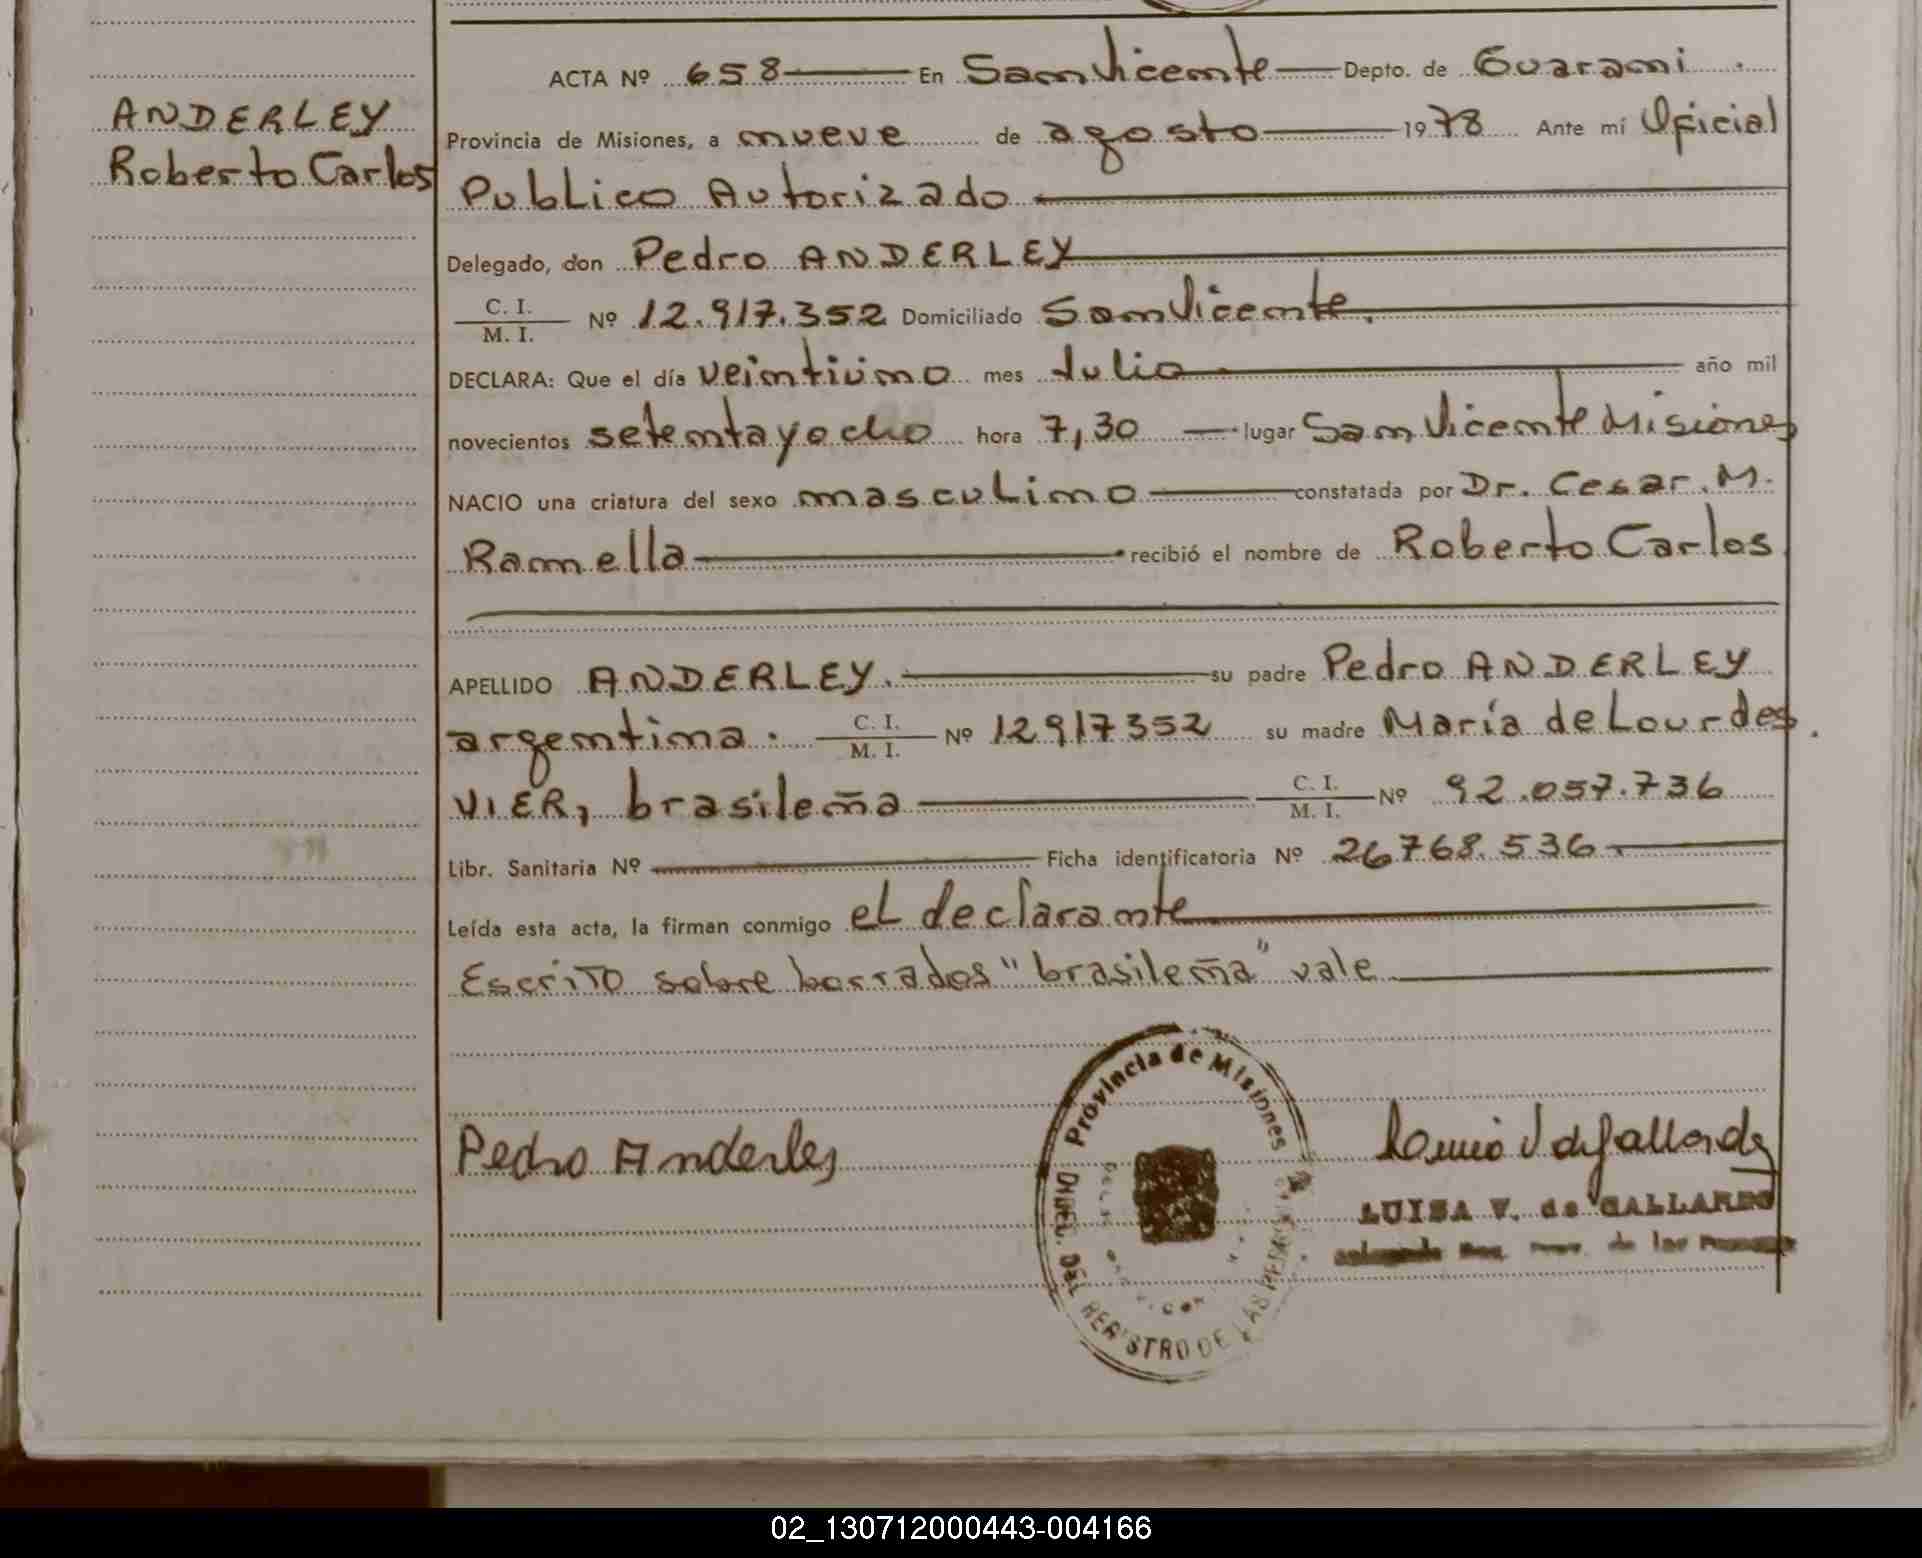 ANDERLEY
Roberto Carlos
ACTA Nº 658 En San Vicente Depto. de Guarani
Provincia de Misiones, a nueve de agosto 1978 Ante mí Oficial
Publico Autorizado
Delegado, don Pedro ANDERLEY
C. I.
M. I. Nº 12.917.352 Domiciliado San Vicente.
DECLARA: Que el día veintiúno mes Julio año mil
novecientos setentayocho hora 7,30 lugar San Vicente Misiones
NACIO una criatura del sexo masculino constatada por Dr. Cesar M.
Ramella recibió el nombre de Roberto Carlos
APELLIDO ANDERLEY. su padre Pedro ANDERLEY
argentina. C. I. M. I. Nº 12917352 su madre María de Lourdes
VIER, brasileña C. I. M. I. Nº 92.057.736
Libr. Sanitaria Nº Ficha identificatoria Nº 26768.536
Leída esta acta, la firman conmigo el declarante
Escrito sobre borrados "brasileña" vale
Pedro Anderley
Provincia de Misiones
DIREC. DEL REGISTRO DE LAS PERSONAS
LUISA V. de GALLARDO
de las Personas
02_130712000443-004166